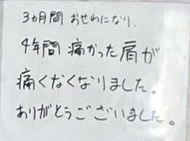 3ヵ月間 おせわになり、
4年間 痛かった肩が
痛くなくなりました。
ありがとうございました。